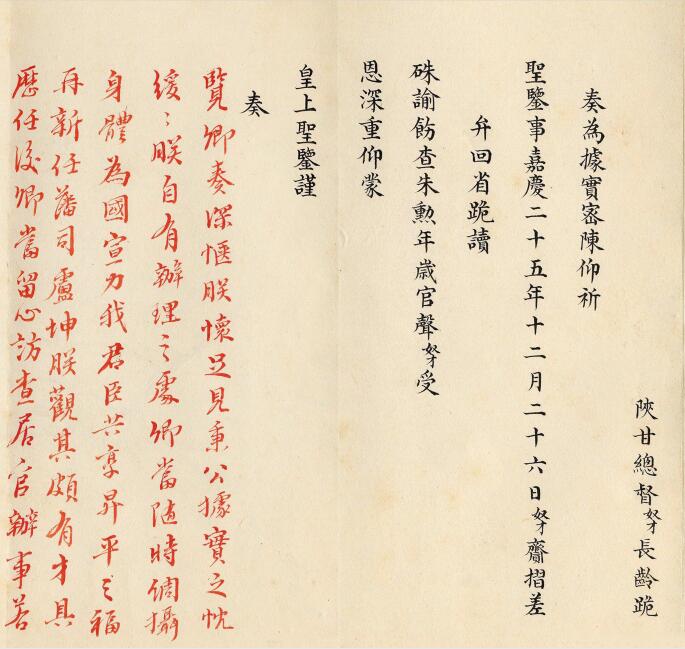 陝甘總督奴才長齡跪
奏為據實密陳仰祈
聖鑒事嘉慶二十五年十二月二十六日奴才齎摺差
弁回省跪讀
硃諭飭查朱勳年歲官聲奴才受
恩深重仰蒙
皇上聖鑒謹
奏
覽卿奏深愜朕懷足見秉公據實之忱
緩〻朕自有辦理之處卿當隨時倜攝
身體為國宣力我君臣共享昇平之福
再新任藩司盧坤朕觀其頗有才具
歷任後卿當留心訪查居官辦事若